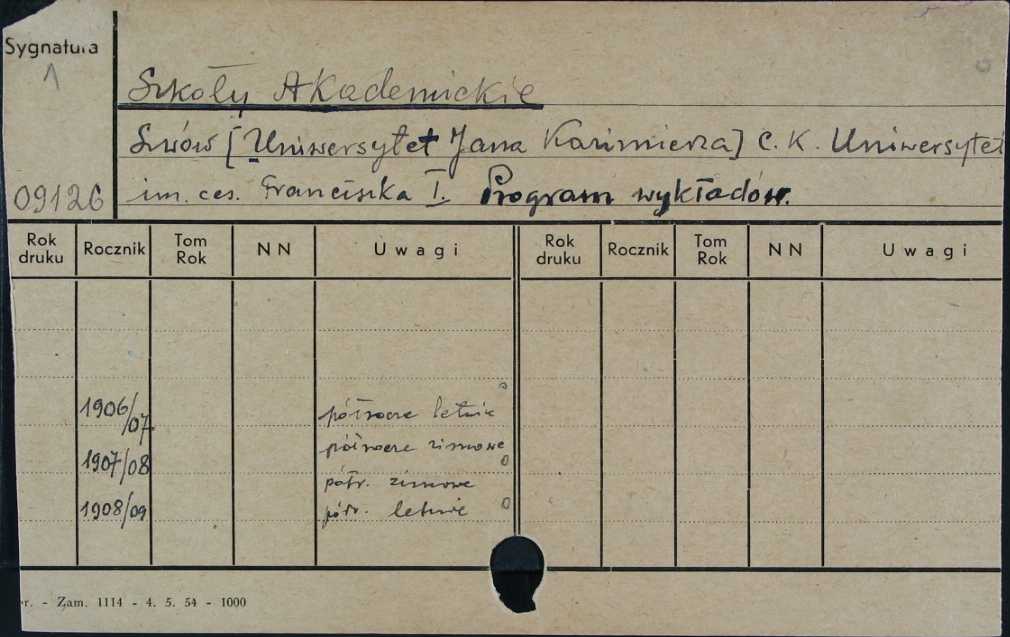 Sygnatura
1
09126
Szkoły Akademickie
Lwów [Uniwersytet Jana Kazimierza] C. K. Uniwersytet
im. ces. Franciszka I. Program wykładów.
Rok druku Rocznik Tom Rok NN Uwagi Rok druku Rocznik Tom Rok NN Uwagi
1906/07 półrocze letnie
półrocze zimowe
1907/08 półr. zimowe
1908/09 półr. letnie
r. - Zam. 1114 - 4. 5. 54 - 1000